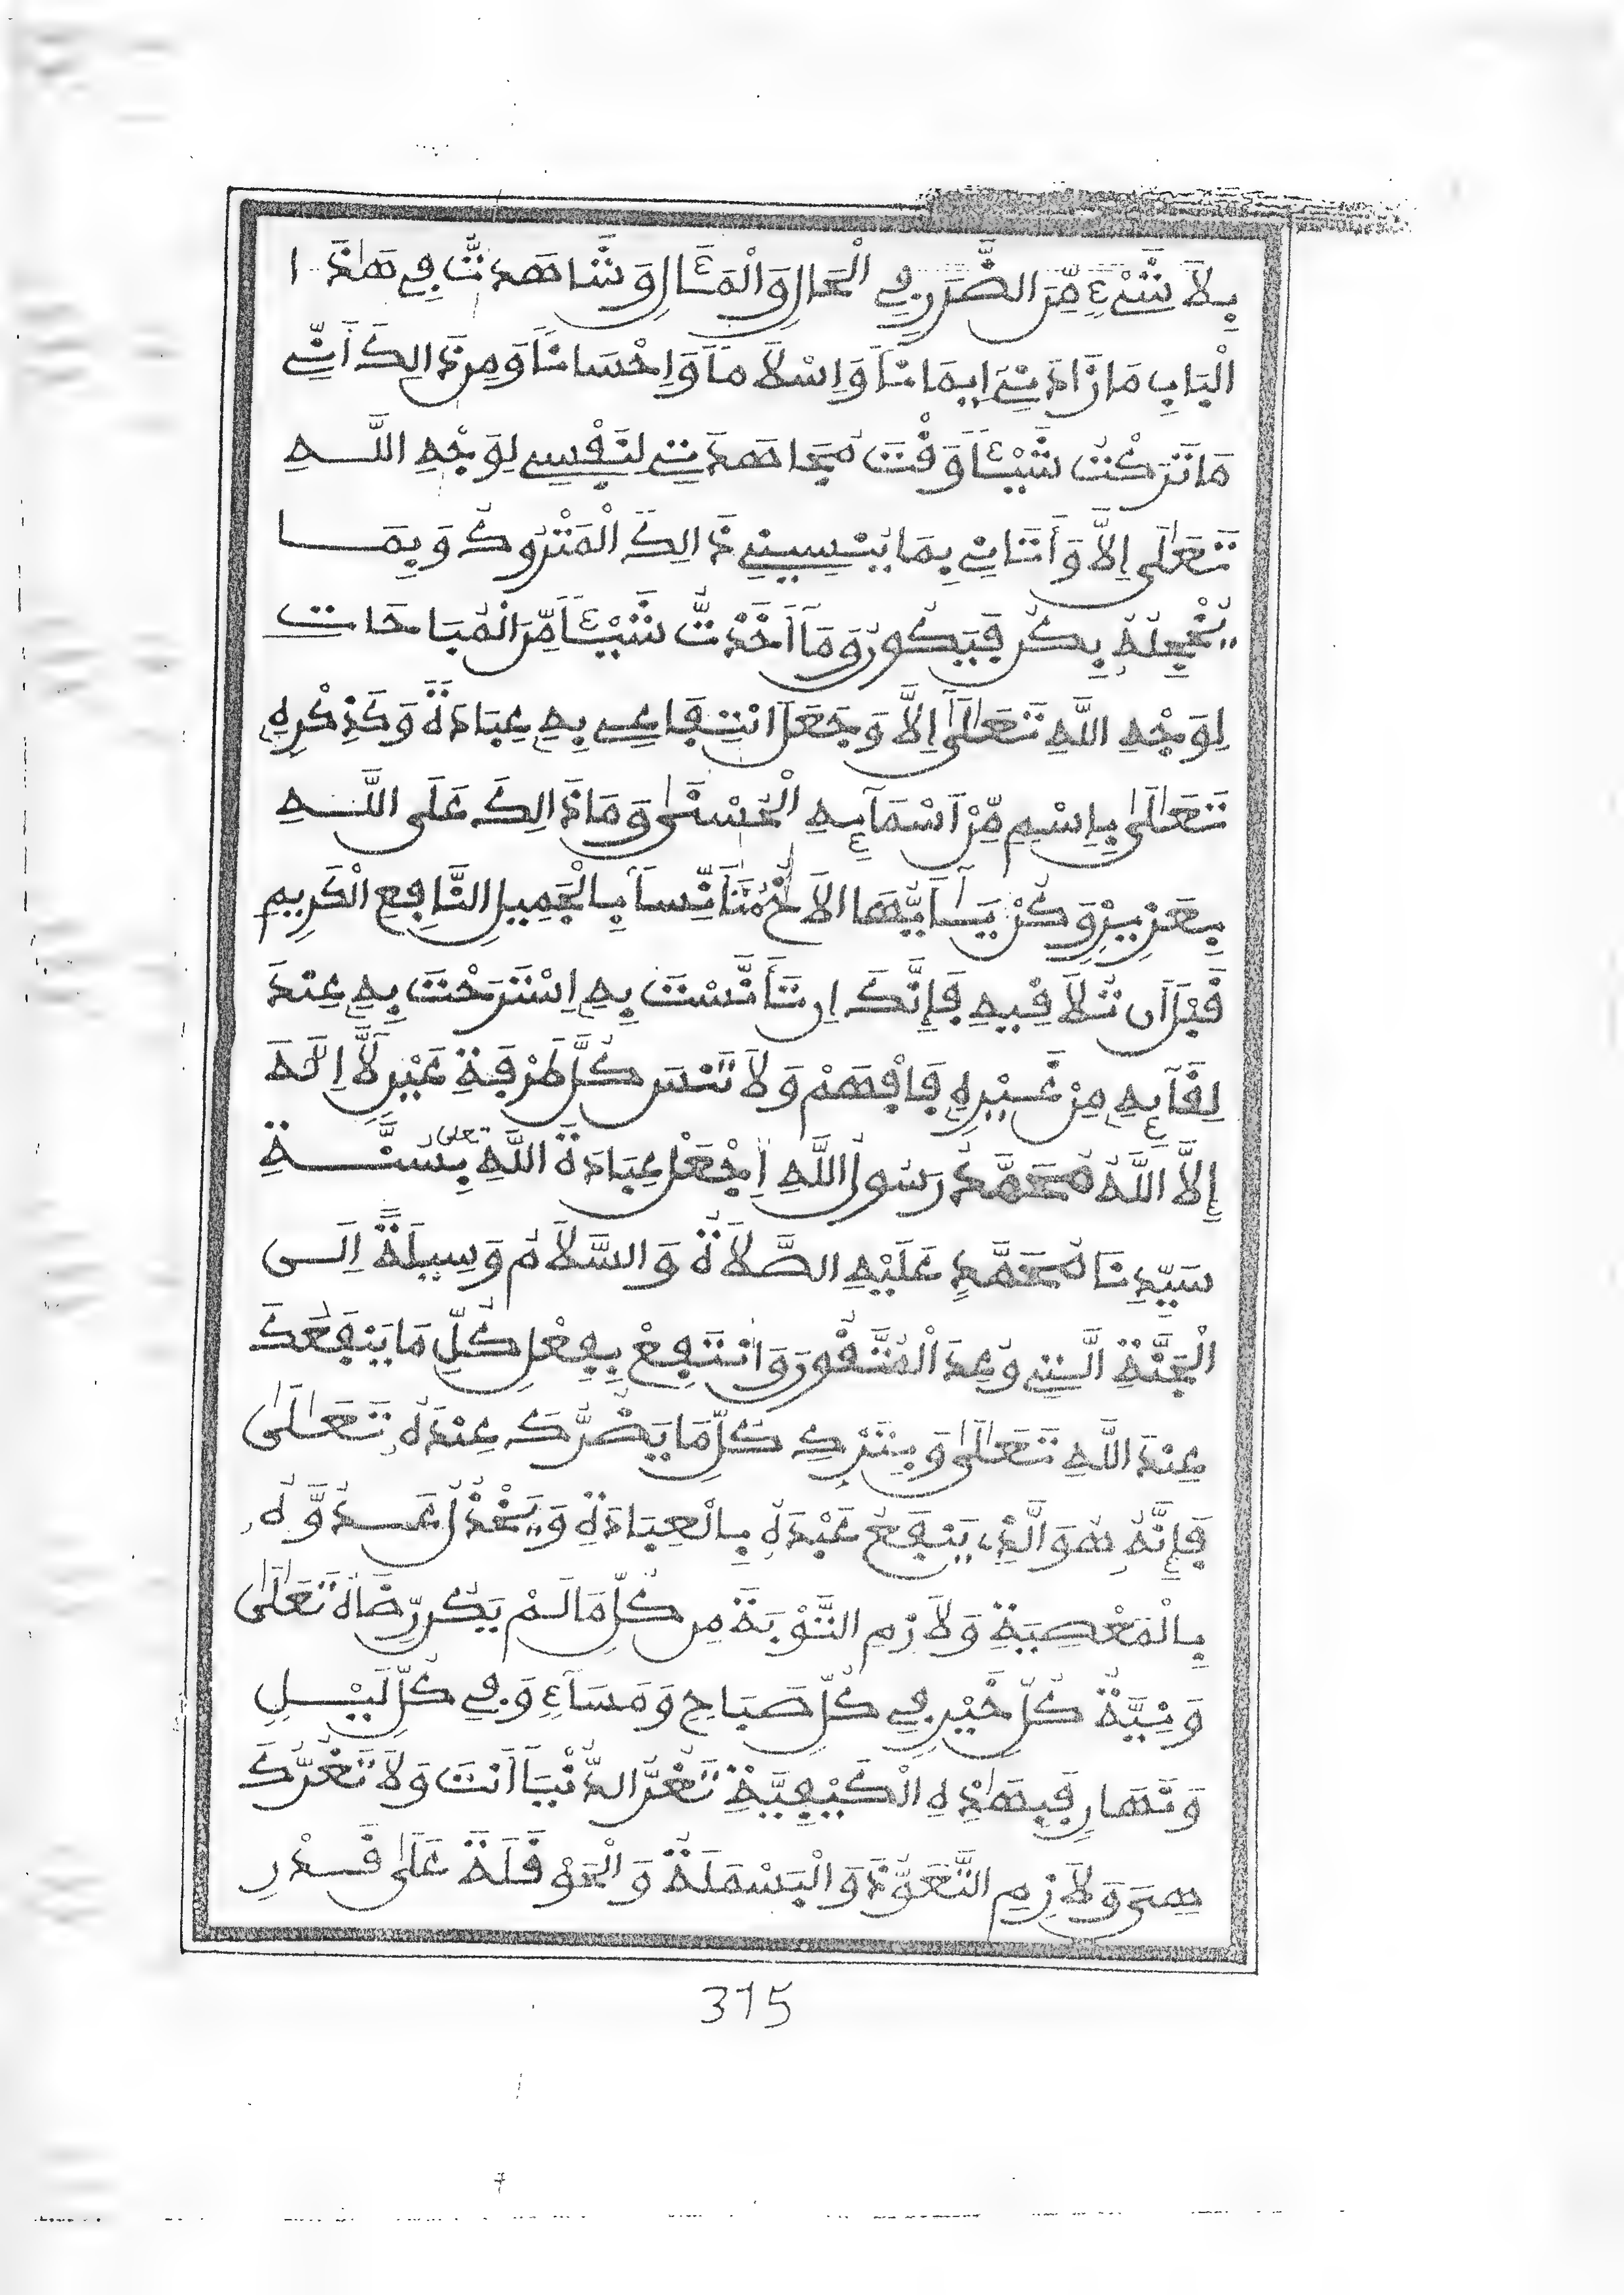 بِلاَ شَيْءٍ مِّنَ الضَّرَرِ فِي الْحَالِ وَالْمَئَالِ وَشَاهَدتُّ فِي هَٰذَا
الْبَابِ مَا زَادَنِي إِيمَانًا وَإِسْلاَمًا وَإِحْسَانًا وَمِن ذَالِكَ أَنِّي
مَا تَرَكْتُ شَيْئًا وَقْتَ مُجَاهَدَتِي لِنَفْسِي لِوَجْهِ اللَّهِ
تَعَٰلَى إِلاَّ وَأَتَانِي بِمَا يُنْسِينِي ذَالِكَ الْمَتْرُوكَ وَبِمَا
يُخْجِلُهُ بِكُن فَيَكُونُ وَمَا أَخَذتُّ شَيْئًا مِّنَ الْمُبَاحَاتِ
لِوَجْهِ اللَّهِ تَعَٰلَىٰ إِلاَّ وَجَعَلَ انْتِفَاعِي بِهِ عِبَادَةً وَكَذِكْرِهِ
تَعَٰلَىٰ بِاسْمٍ مِّنْ أَسْمَآئِهِ الْحُسْنَىٰ وَمَا ذَالِكَ عَلَى اللَّهِ
بِعَزِيزٍ وَكُنْ يَا أَيُّهَا الأَخُ مُتَأَنِّسًا بِالْجَمِيلِ النَّافِعِ الْكَرِيمِ
قَبْلَ أَن تُلاَقِيهِ فَإِنَّكَ إِن تَأَنَّسْتَ بِهِ اسْتَرَحْتَ بِهِ عِنْدَ
لِقَآئِهِ مِنْ غَيْرِهِ فَافْهَمْ وَلاَ تَنْسَ كُلَّ طَرْفَةِ عَيْنٍ لاَّ إِلَٰهَ
إِلاَّ اللَّهُ مُحَمَّدٌ رَسُولُ اللَّهِ اِجْعَلْ عِبَادَةَ اللَّهِ تعلى بِسُنَّةِ
سَيِّدِنَا مُحَمَّدٍ عَلَيْهِ الصَّلاَةُ وَالسَّلاَمُ وَسِيلَةً إِلَى
الْجَنَّةِ الَّتِي وُعِدَ الْمُتَّقُونَ وَانْتَفِعْ بِفِعْلِ كُلِّ مَا يَنْفَعُكَ
عِنْدَ اللَّهِ تَعَٰلَىٰ وَبِتَرْكِ كُلِّ مَا يَضُرُّكَ عِنْدَهُ تَعَٰلَىٰ
فَإِنَّهُ هُوَ الَّذِي يَنْفَعُ عَبْدَهُ بِالْعِبَادَةِ وَيَخْذُلُ عَدُوَّهُ
بِالْمَعْصِيَةِ وَلاَزِمِ التَّوْبَةَ مِن كُلِّ مَا لَمْ يَكُن رِّضَاهُ تَعَٰلَىٰ
وَنِيَّةَ كُلِّ خَيْرٍ فِي كُلِّ صَبَاحٍ وَمَسَآءٍ وَفِي كُلِّ لَيْلٍ
وَنَهَارٍ فَبِهَٰذِهِ الْكَيْفِيَّةِ تَغُرُّ الدُّنْيَا أَنتَ وَلاَ تَغُرُّكَ
هِيَ وَلاَزِمِ التَّعَوُّذَ وَالْبَسْمَلَةَ وَالْحَوْقَلَةَ عَلَىٰ قَدْرِ
375